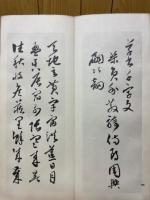 草書千字文
梁員外散騎侍郎周興
嗣次韻
天地玄黃宇宙洪荒日月
盈昃辰宿列張寒來暑
往秋收冬藏閏餘成歲